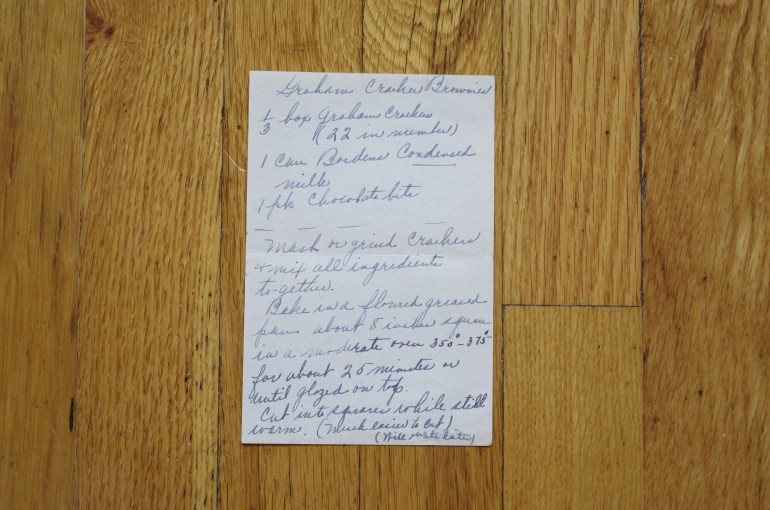 Graham Cracker Brownies
1/3 box Graham Crackers
(22 in number)
1 Can Bordens Condensed
milk
1 pk Chocolate bits
Mash or grind Crackers
& mix all ingredients
to-gether.
Bake in a floured greased
pan about 8 inches square
in a moderate oven 350°-375°
for about 25 minutes or
until glazed on top.
Cut into squares while still
warm. (Much easier to cut)
(Will write later)